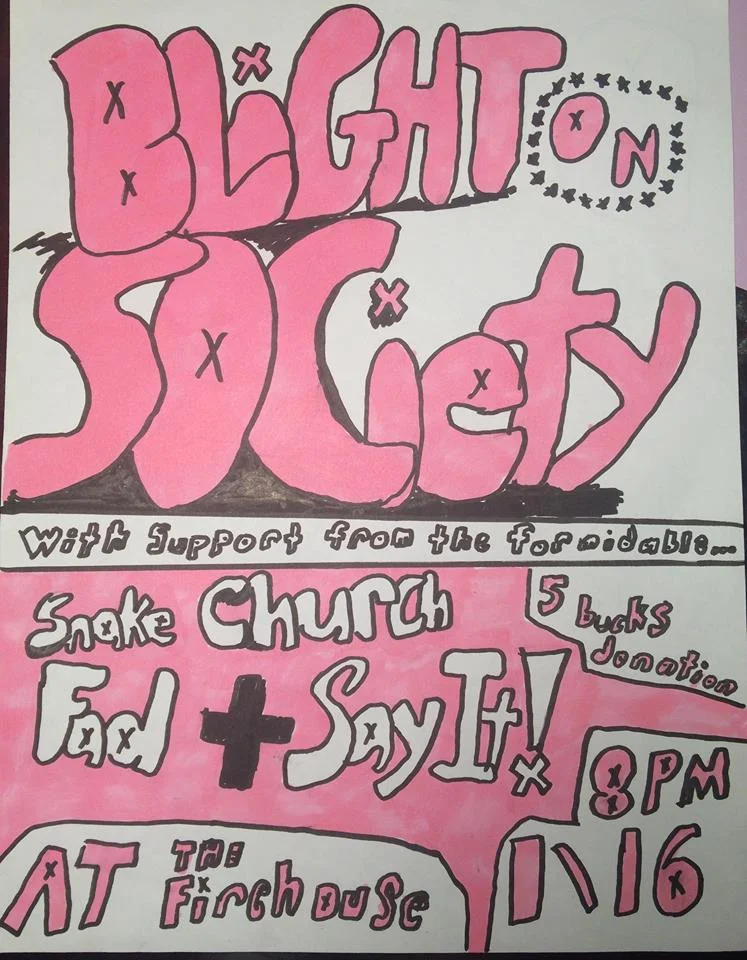 BLiGHT ON
SOCiety
With Support from the formidable...
Snake Church
Fad + Say It!
5 bucks
donation
8PM
1\16
AT THE
Firehouse